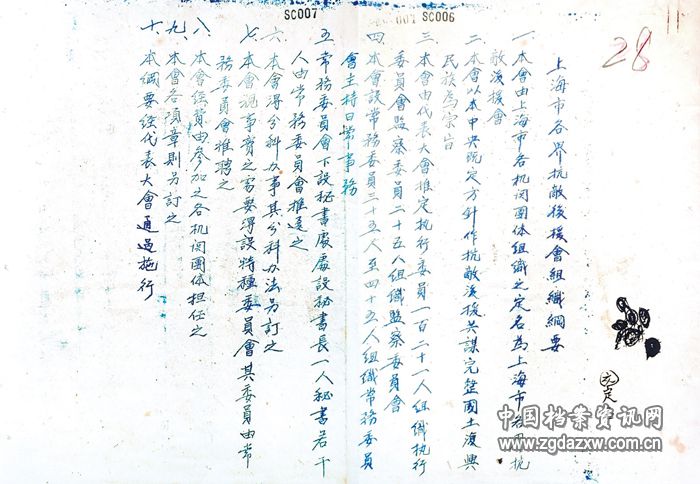 SC007
SC006
28
上海市各界抗敵後援會組織綱要
一、本會由上海市各机関團体組織之定名為上海市各界抗
敵後援會
二、本會以本中央既定方針作抗敵後援共謀完整國土復興
民族為宗旨
三、本會由代表大會推定执行委員一百二十一人組織执行
委員會監察委員二十五人組織監察委員會
四、本會設常務委員三十五人至四十五人組織常務委員
會主持日常事務
五、常務委員會下設秘書處處設秘書長一人秘書若干
人由常務委員會推選之
六、本會得分科办事其分科办法另訂之
七、本會視事實之需要得設特種委員會其委員由常
務委員會推聘之
八、本會經費由參加之各机関團体担任之
九、本會各項章則另訂之
十、本綱要經代表大會通過施行
中国档案资讯网
www.zgdazxw.com.cn